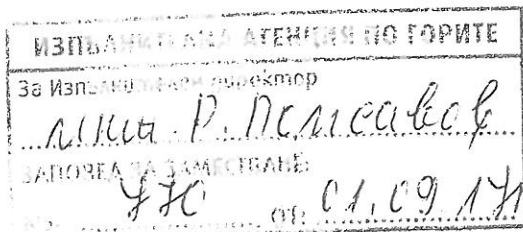 ИЗПЪЛНИТЕЛНА АГЕНЦИЯ ПО ГОРИТЕ
За Изпълнителен директор
инж. Р.
ЗАПОВЕД ЗА ЗАМЕСТВАНЕ:
770 от: 01.09.17